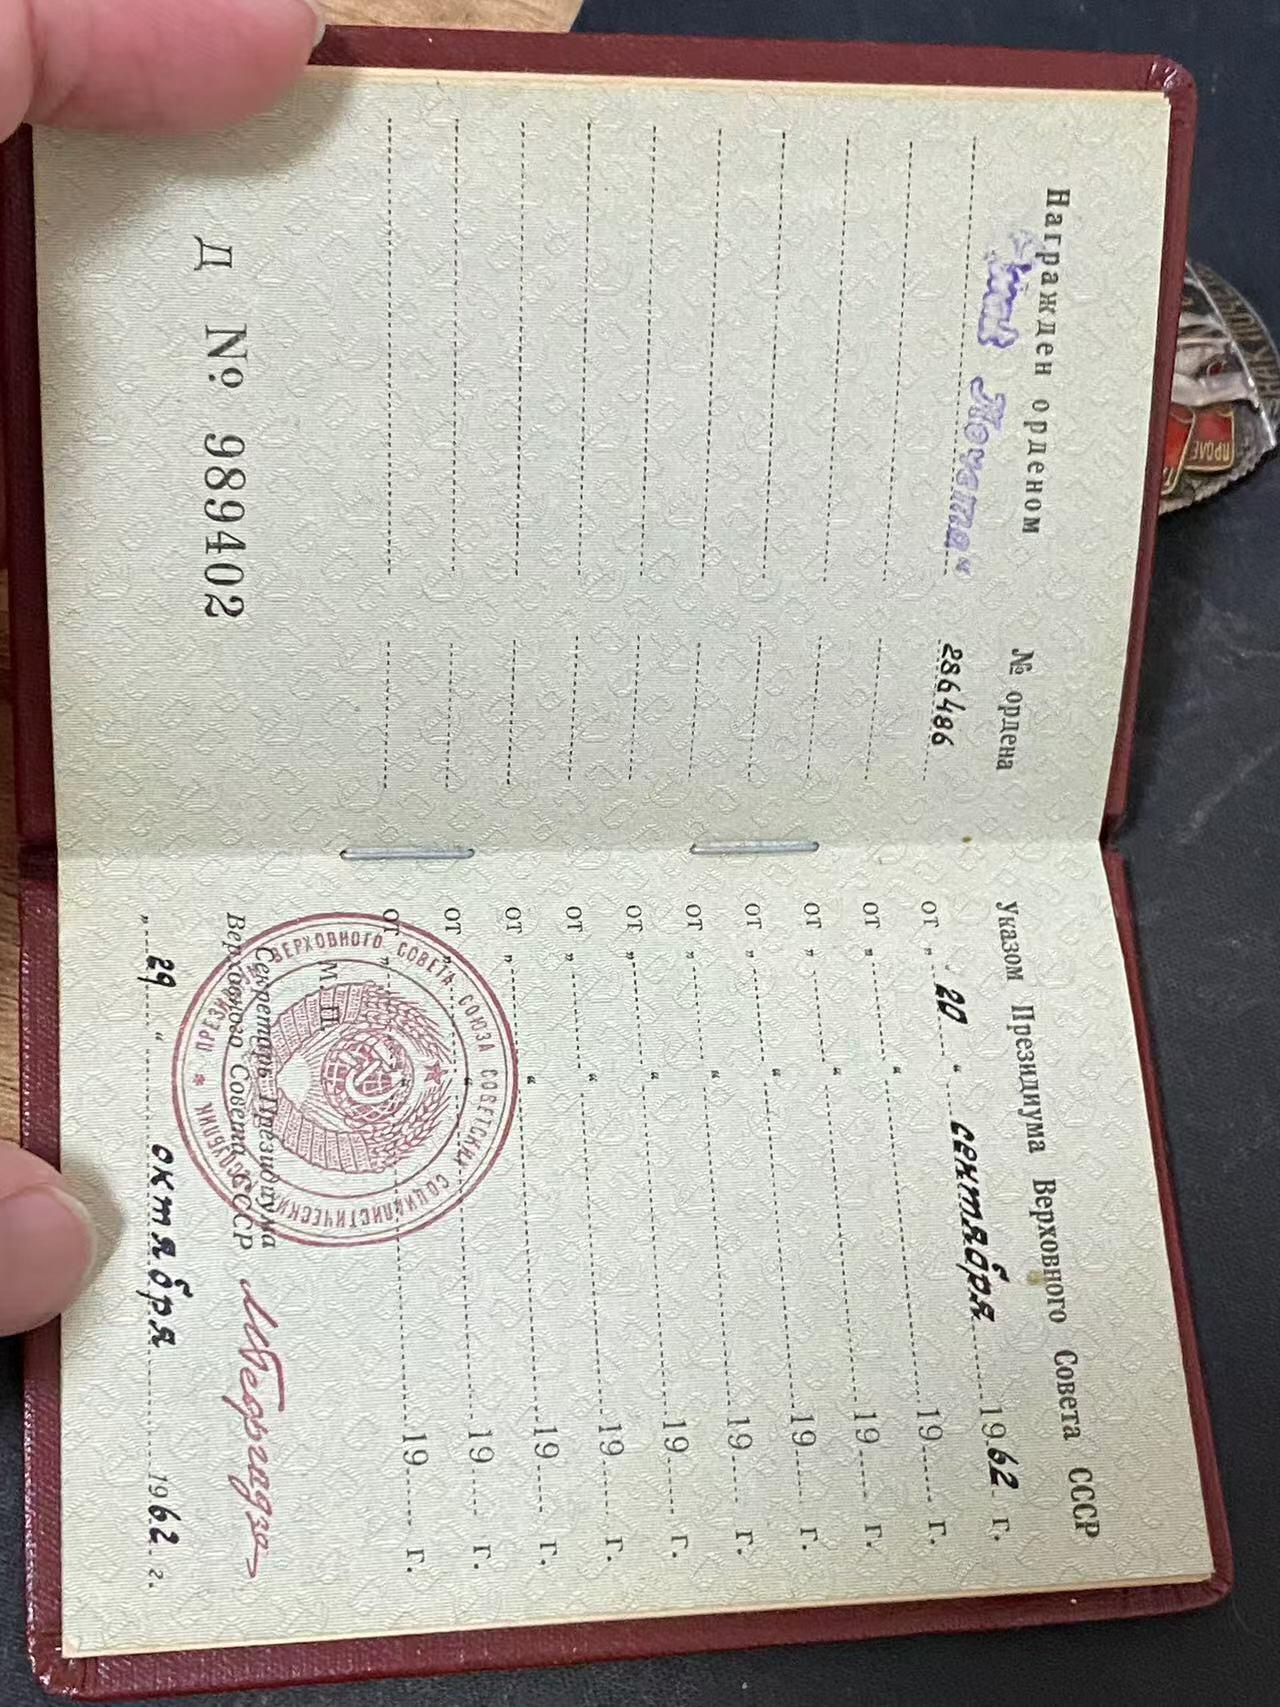 Награжден орденом № ордена
„Знак Почета“ 286486
Д № 989402
Указом Президиума Верховного Совета СССР
от „20“ сентября 1962 г.
от „ “ 19 г.
от „ “ 19 г.
от „ “ 19 г.
от „ “ 19 г.
от „ “ 19 г.
от „ “ 19 г.
от „ “ 19 г.
от „ “ 19 г.
от „ “ 19 г.
М. П.
Секретарь Президиума
Верховного Совета СССР
„29“ октября 1962 г.
ПРЕЗИДИУМ ВЕРХОВНОГО СОВЕТА СОЮЗА СОВЕТСКИХ СОЦИАЛИСТИЧЕСКИХ РЕСПУБЛИК *
ПРОЛЕ